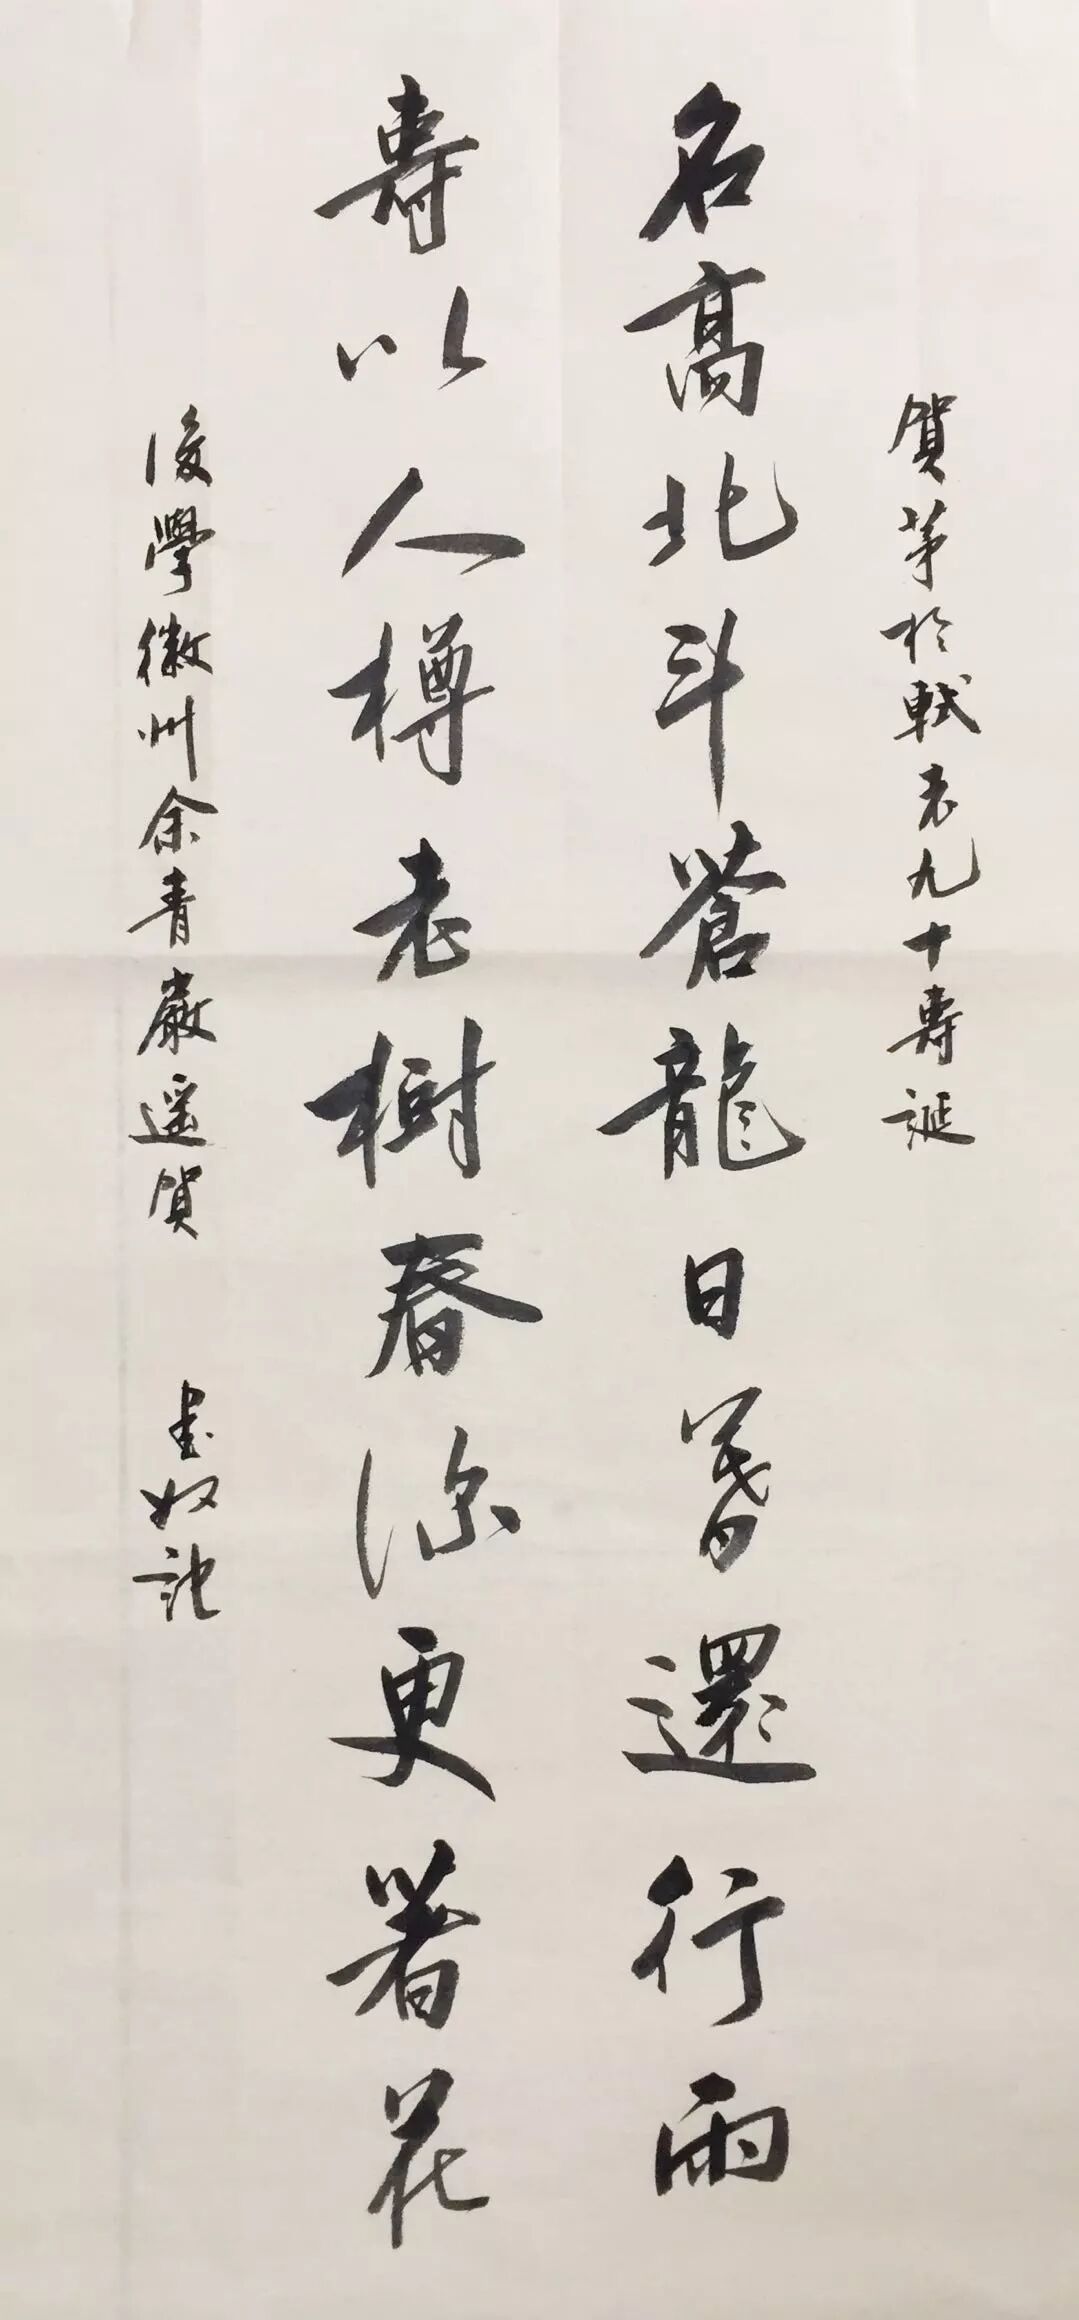 賀茅於軾老九十壽誕
名高北斗蒼龍日暮還行雨
壽以人樽老樹春深更著花
後學徽州余青巖遥賀 書奴記